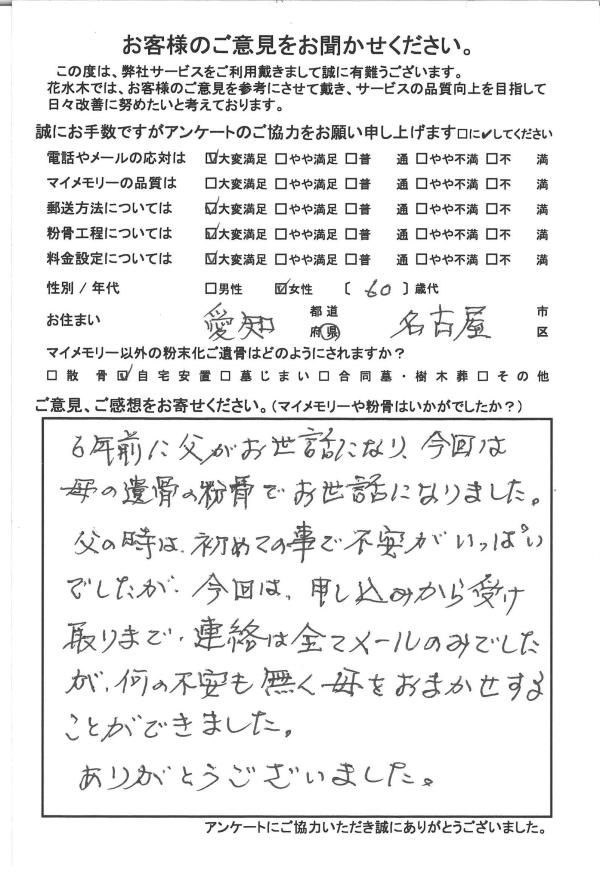 お客様のご意見をお聞かせください。
この度は、弊社サービスをご利用戴きまして誠に有難うございます。
花水木では、お客様のご意見を参考にさせて戴き、サービスの品質向上を目指して
日々改善に努めたいと考えております。
誠にお手数ですがアンケートのご協力をお願い申し上げます□に✔してください
電話やメールの応対は ☑大変満足 □やや満足 □普 通 □やや不満 □不 満
マイメモリーの品質は □大変満足 □やや満足 □普 通 □やや不満 □不 満
郵送方法については ☑大変満足 □やや満足 □普 通 □やや不満 □不 満
粉骨工程については ☑大変満足 □やや満足 □普 通 □やや不満 □不 満
料金設定については ☑大変満足 □やや満足 □普 通 □やや不満 □不 満
性別 / 年代 □男性 ☑女性 〔 60 〕歳代
お住まい 愛知 都 道 府 県 名古屋 市 区
マイメモリー以外の粉末化ご遺骨はどのようにされますか？
□散 骨 ☑自宅安置 □墓じまい □合同墓・樹木葬 □その他
ご意見、ご感想をお寄せください。（マイメモリーや粉骨はいかがでしたか？）
6年前に父がお世話になり、今回は
母の遺骨の粉骨でお世話になりました。
父の時は、初めての事で不安がいっぱい
でしたが、今回は、申し込みから受け
取りまで、連絡は全てメールのみでした
が、何の不安も無く母をおまかせする
ことができました。
ありがとうございました。
アンケートにご協力いただき誠にありがとうございました。